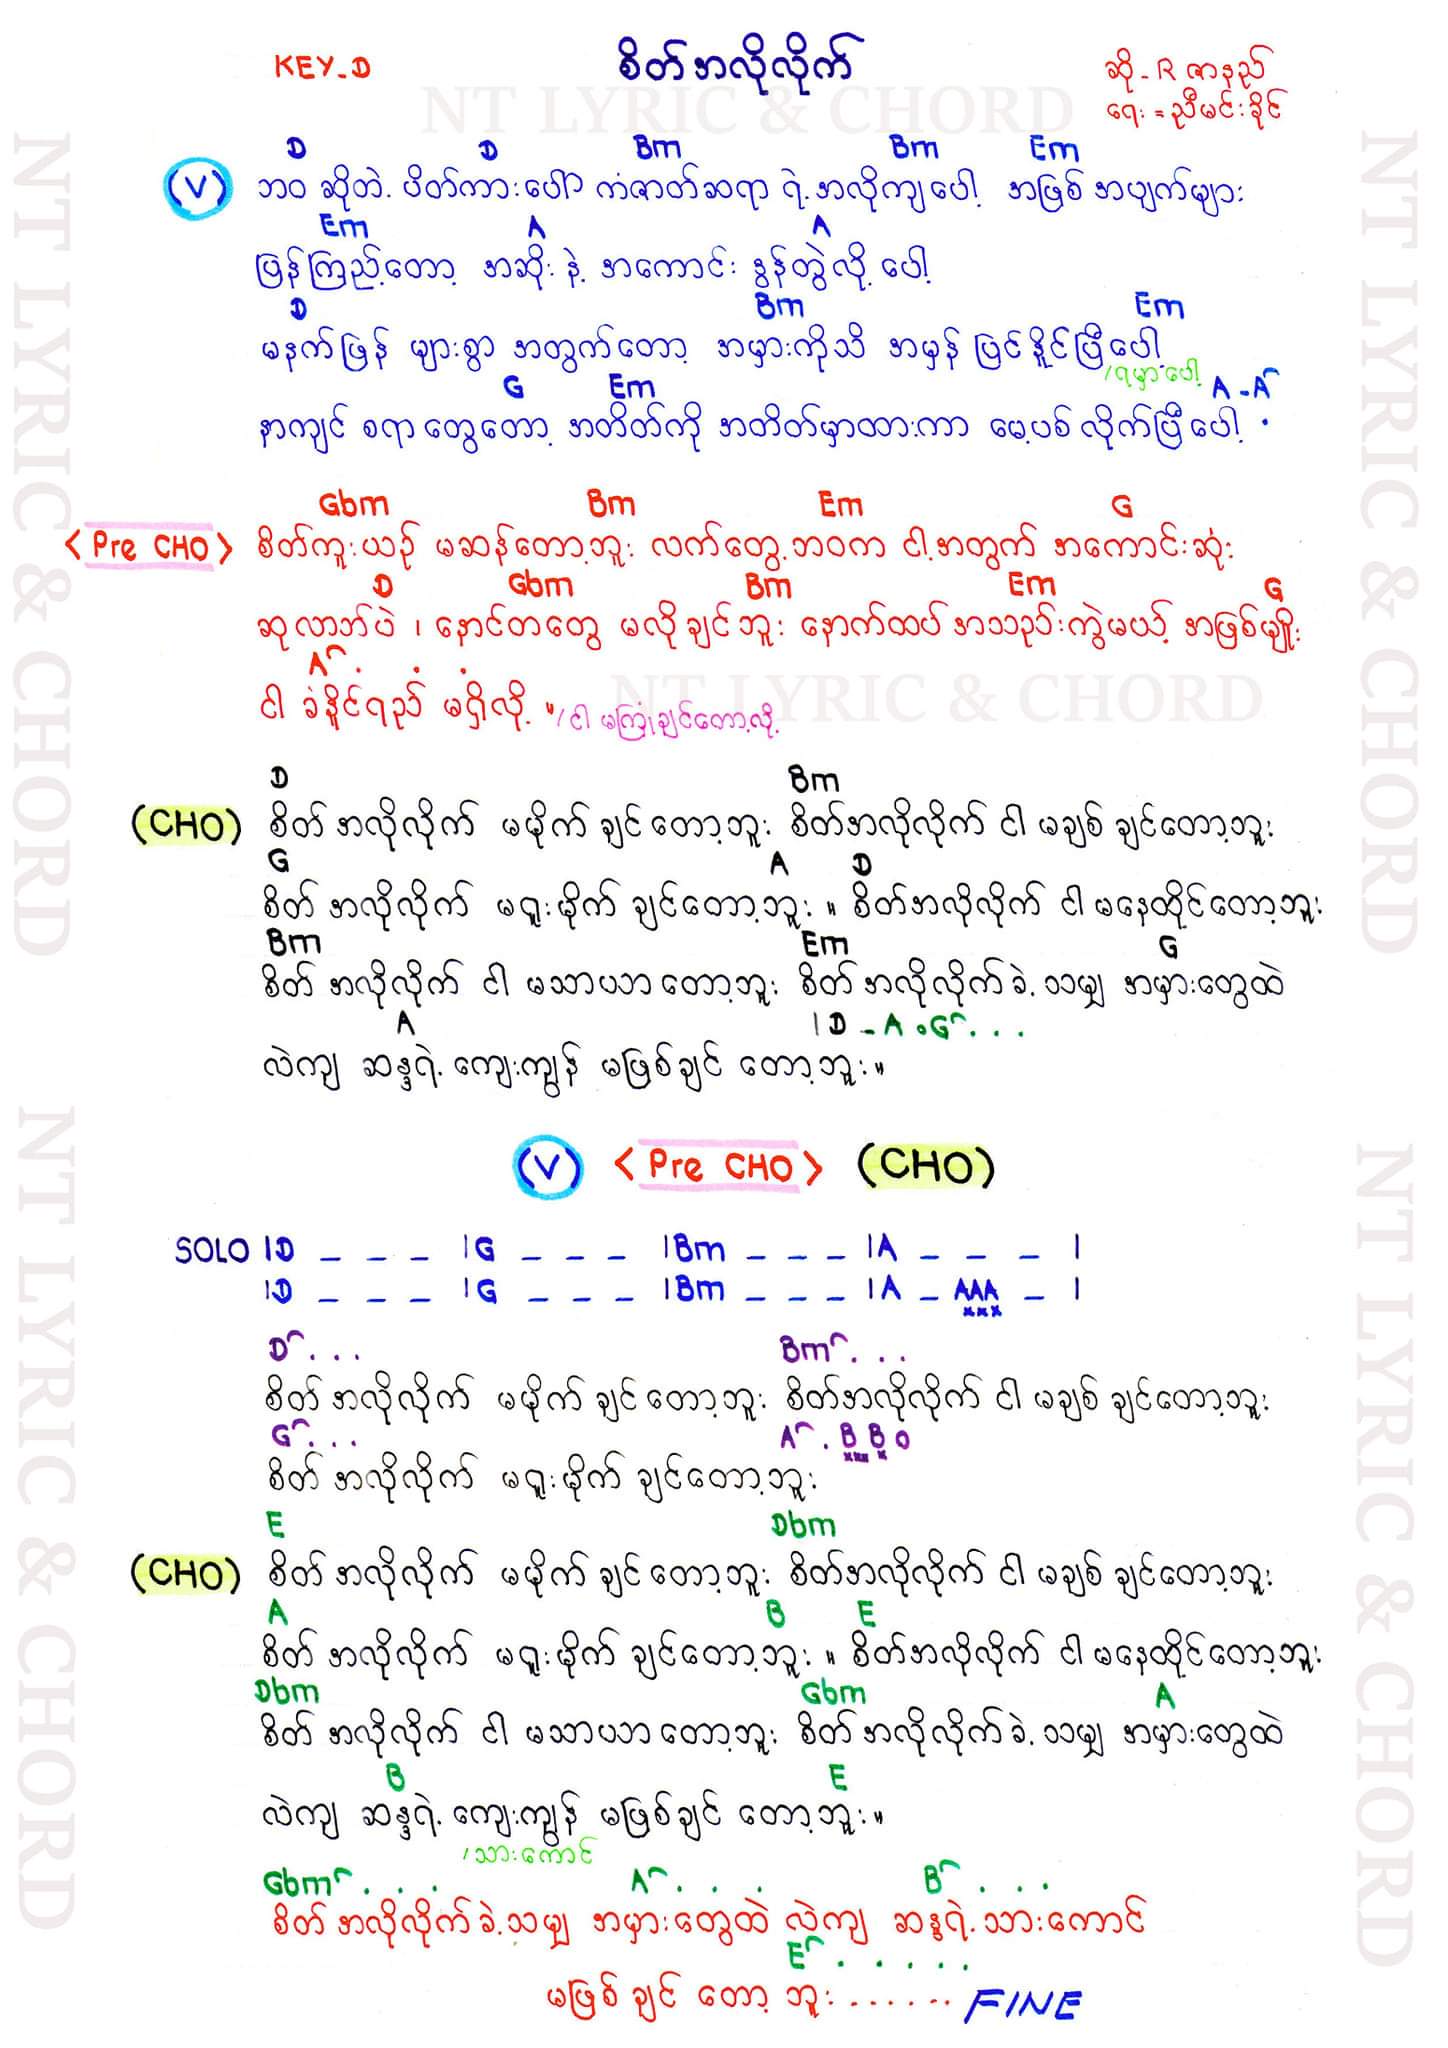 KEY-D
စိတ်အလိုလိုက်
ဆို - R ဇာနည်
ရေး = ညီမင်းခိုင်
NT LYRIC & CHORD
D D Bm Bm Em
(V) ဘဝ ဆိုတဲ့ ဇိတ်ကားပေါ် ကံဇာတ်ဆရာ ရဲ့ အလိုကျပေါ့ အဖြစ် အပျက်များ
Em A A
ပြန်ကြည့်တော့ အဆိုး နဲ့ အကောင်း ဒွန်တွဲလို့ ပေါ့
D Bm Em
မနက်ဖြန် များစွာ အတွက်တော့ အမှားကိုသိ အမှန် ပြင်နိူင်ပြီပေါ့
/ရမှာပေါ့
G Em A - A
နာကျင် စရာ တွေတော့ အတိတ်ကို အတိတ်မှာထားကာ မေ့ပစ် လိုက်ပြီ ပေါ့
Gbm Bm Em G
<Pre CHO> စိတ်ကူးယဉ် မဆန်တော့ဘူး လက်တွေ့ဘဝက ငါ့အတွက် အကောင်းဆုံး
D Gbm Bm Em G
ဆုလာဘ်ပဲ ၊ နောင်တတွေ မလိုချင်ဘူး နောက်ထပ် အသည်းကွဲမယ့် အဖြစ်မျိူး
A . . .
ငါ ခံနိူင်ရည် မရှိလို့ ။ /ငါ မကြုံချင်တော့လို့
NT LYRIC & CHORD
D Bm
(CHO) စိတ်အလိုလိုက် မမိုက် ချင် တော့ဘူး စိတ်အလိုလိုက် ငါ မချစ် ချင်တော့ဘူး
G A D
စိတ် အလိုလိုက် မရူးမိုက် ချင်တော့ဘူး ။ စိတ်အလိုလိုက် ငါ မနေထိုင်တော့ဘူး
Bm Em G
စိတ် အလိုလိုက် ငါ မသာယာ တော့ဘူး စိတ် အလိုလိုက်ခဲ့ သမျှ အမှားတွေထဲ
A |D - A . G . . .
လဲကျ ဆန္ဒရဲ့ ကျေးကျွန် မဖြစ်ချင် တော့ဘူး ။
(V) <Pre CHO> (CHO)
SOLO |D _ _ _ |G _ _ _ |Bm _ _ _ |A _ _ _ |
|D _ _ _ |G _ _ _ |Bm _ _ _ |A _ AAA _ |
xxx
D . . . Bm . . .
စိတ် အလိုလိုက် မမိုက် ချင် တော့ဘူး စိတ်အလိုလိုက် ငါ မချစ် ချင်တော့ဘူး
G . . . A . B B 0
စိတ် အလိုလိုက် မရူးမိုက် ချင်တော့ဘူး
E Dbm
(CHO) စိတ် အလိုလိုက် မမိုက် ချင် တော့ဘူး စိတ်အလိုလိုက် ငါ မချစ် ချင်တော့ဘူး
A B E
စိတ် အလိုလိုက် မရူးမိုက် ချင်တော့ဘူး ။ စိတ်အလိုလိုက် ငါ မနေထိုင်တော့ဘူး
Dbm Gbm A
စိတ် အလိုလိုက် ငါ မသာယာ တော့ဘူး စိတ် အလိုလိုက်ခဲ့ သမျှ အမှားတွေထဲ
B E
လဲကျ ဆန္ဒရဲ့ ကျေးကျွန် မဖြစ်ချင် တော့ဘူး ။
/သားကောင်
Gbm . . . A . . . B . . .
စိတ် အလိုလိုက်ခဲ့ သမျှ အမှားတွေထဲ လဲကျ ဆန္ဒရဲ့ သားကောင်
E . . . . .
မဖြစ် ချင် တော့ ဘူး ...... FINE
NT LYRIC & CHORD
NT LYRIC & CHORD
NT LYRIC & CHORD
NT LYRIC & CHORD